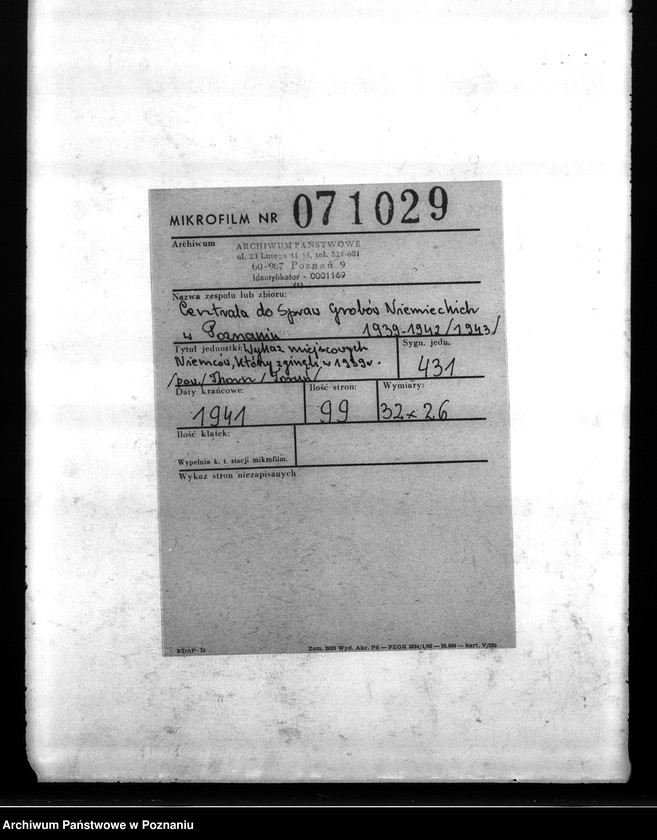 MIKROFILM NR 071029
Archiwum
ARCHIWUM PAŃSTWOWE
ul. 23 Lutego 41/43, tel. 524-601
60-967 Poznań 9
Identyfikator - 0001169
Nazwa zespołu lub zbioru:
Centrala do Spraw Grobów Niemieckich
w Poznaniu 1939-1942/1943/
Tytuł jednostki: Wykaz miejscowych
Niemców, którzy zginęli w 1939 r.
/pow. Thorn/Toruń/
Sygn. jedn.
431
Daty krańcowe:
1941
Ilość stron:
99
Wymiary:
32 x 26
Ilość klatek:
Wypełnia k. t. stacji mikrofilm.
Wykaz stron niezapisanych
NDAP
Wyd. Akc. Pń — PZGK
Archiwum Państwowe w Poznaniu